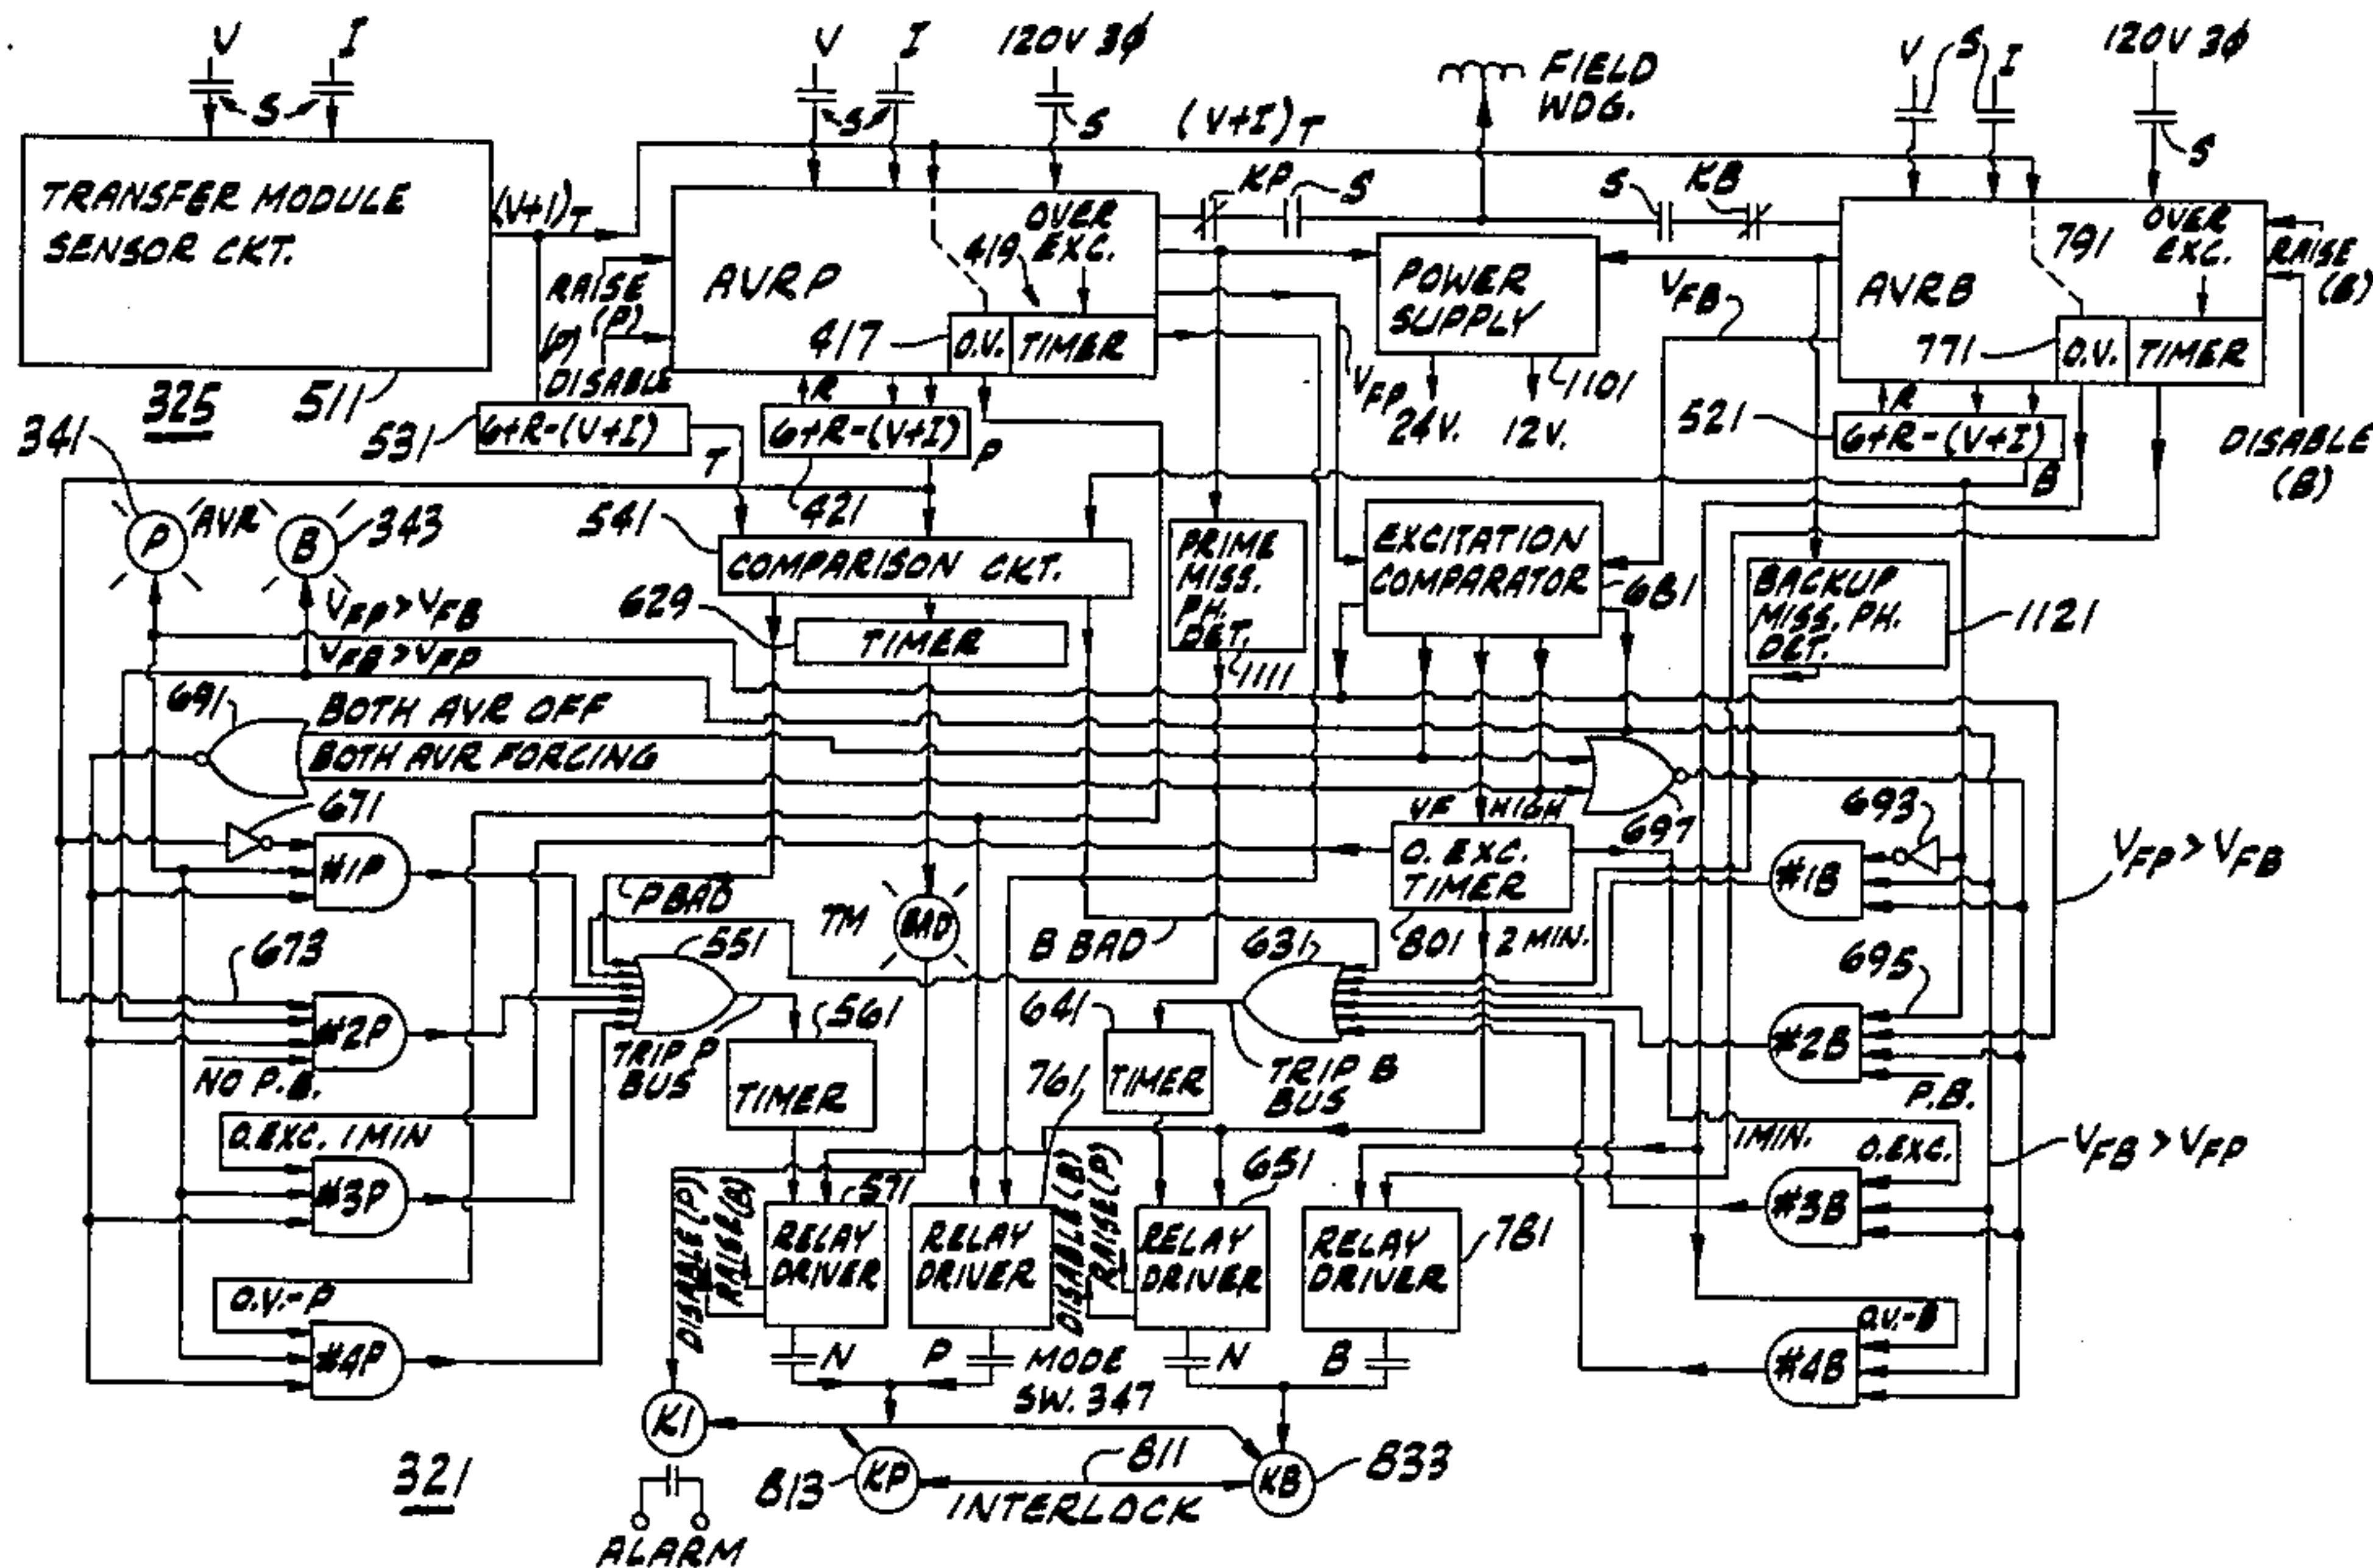 V I
S
V I
S
120V 3Ø
S
(V+I)T
FIELD
WDG.
V S I
120V 3Ø
S
TRANSFER MODULE
SENSOR CKT.
(V+I)T
RAISE
(P)
(P)
DISABLE
AVRP
OVER
EXC.
419
417
O.V.
TIMER
KP
S
S
KB
POWER
SUPPLY
VFP
24V.
12V.
1101
VFB
AVRB
791
OVER
EXC.
771
O.V.
TIMER
RAISE
(B)
DISABLE
(B)
325
511
531
6+R-(V+I)
T
R
6+R-(V+I)
P
421
521
R
6+R-(V+I)
B
341
P
AVR
B
343
541
COMPARISON CKT.
629
TIMER
PRIME
MISS.
PH.
DET.
1111
EXCITATION
COMPARATOR
681
BACKUP
MISS. PH.
DET.
1121
VFP > VFB
VFB > VFP
691
BOTH AVR OFF
BOTH AVR FORCING
671
#1P
697
VF HIGH
O. EXC.
TIMER
801
2 MIN.
693
#1B
VFP > VFB
P BAD
TM
BAD
B BAD
673
551
631
695
#2P
NO P.B.
TRIP P
BUS
561
TIMER
641
TIMER
TRIP B
BUS
#2B
P.B.
761
O.EXC. 1 MIN
#3P
1 MIN.
O.EXC.
#3B
VFB > VFP
DISABLE (P)
RAISE (B)
571
RELAY
DRIVER
RELAY
DRIVER
DISABLE (B)
RAISE (P)
651
RELAY
DRIVER
RELAY
DRIVER
781
O.V.-P
#4P
O.V.-B
#4B
N
P
MODE
SW. 347
N
B
K1
321
813
KP
811
INTERLOCK
KB
833
ALARM